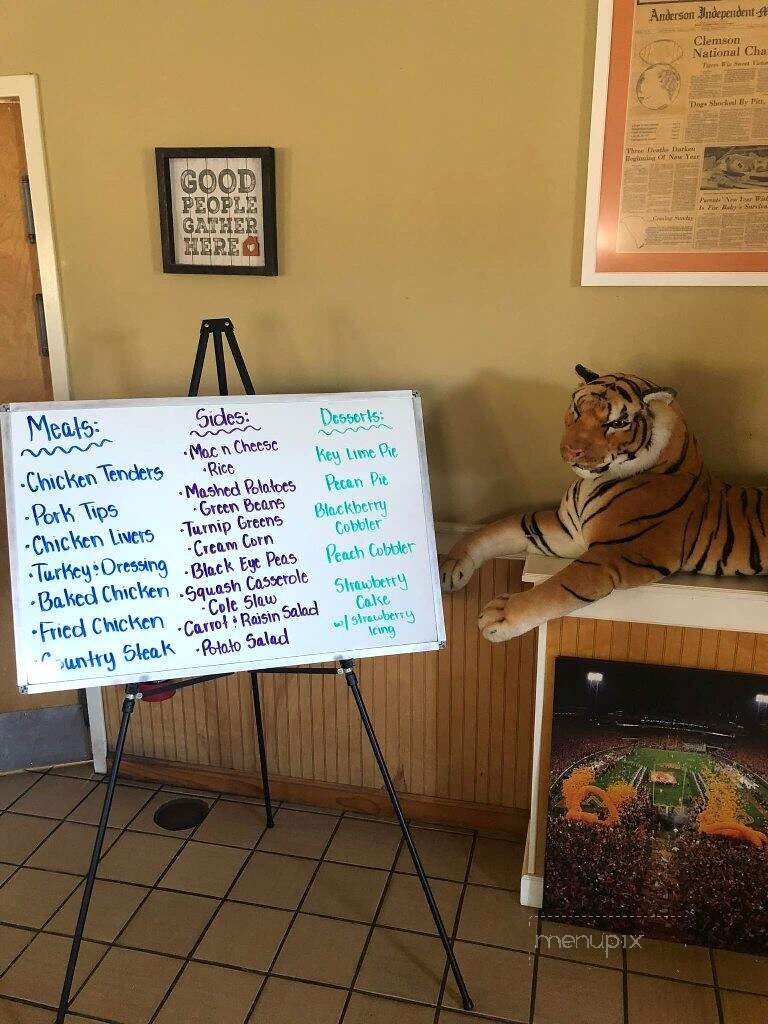 Anderson Independent-
Clemson
National
Tigers Win Sweet
'Dogs Shocked By Pitt,
Three Deaths Darken
Beginning Of New Year
Parents' New Year
Is For Baby's
Coming Sunday
GOOD
PEOPLE
GATHER
HERE
Meats:
• Chicken Tenders
• Pork Tips
• Chicken Livers
• Turkey & Dressing
• Baked Chicken
• Fried Chicken
• Country Steak
Sides:
• Mac n Cheese
• Rice
• Mashed Potatoes
• Green Beans
• Turnip Greens
• Cream Corn
• Black Eye Peas
• Squash Casserole
• Cole Slaw
• Carrot & Raisin Salad
• Potato Salad
Desserts:
Key Lime Pie
Pecan Pie
Blackberry
Cobbler
Peach Cobbler
Strawberry
Cake
w/ strawberry
Icing
menupix